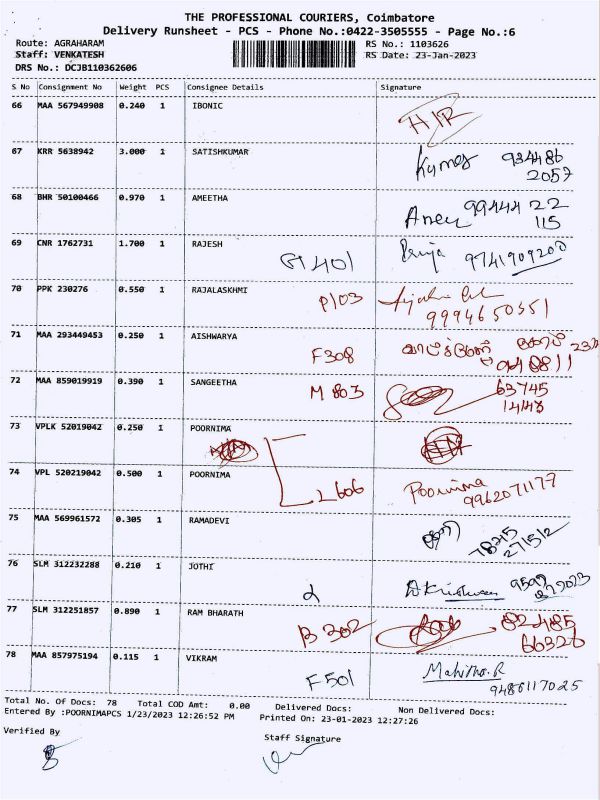 THE PROFESSIONAL COURIERS, Coimbatore
Delivery Runsheet - PCS - Phone No.:0422-3505555 - Page No.:6
Route: AGRAHARAM RS No.: 1103626
Staff: VENKATESH RS Date: 23-Jan-2023
DRS No.: DCJB110362606
S No Consignment No Weight PCS Consignee Details Signature
66 MAA 567949908 0.240 1 IBONIC H/R
67 KRR 5638942 3.000 1 SATISHKUMAR Kumar 934486
2057
68 BHR 50100466 0.970 1 AMEETHA 99444 22
115
69 CNR 1762731 1.700 1 RAJESH G1401 Priya 9741909200
70 PPK 230276 0.550 1 RAJALASKHMI P103
9994650351
71 MAA 293449453 0.250 1 AISHWARYA F308
72 MAA 859019919 0.390 1 SANGEETHA M 803 63745
14143
73 VPLK 52019042 0.250 1 POORNIMA
74 VPL 520219042 0.500 1 POORNIMA L606 Poornima
9962071177
75 MAA 569961572 0.305 1 RAMADEVI 78715
27512
76 SLM 312232288 0.210 1 JOTHI
77 SLM 312251857 0.890 1 RAM BHARATH B 302 82485
66326
78 MAA 857975194 0.115 1 VIKRAM F501
9486117025
Total No. Of Docs: 78 Total COD Amt: 0.00 Delivered Docs: Non Delivered Docs:
Entered By :POORNIMAPCS 1/23/2023 12:26:52 PM Printed On: 23-01-2023 12:27:26
Verified By Staff Signature